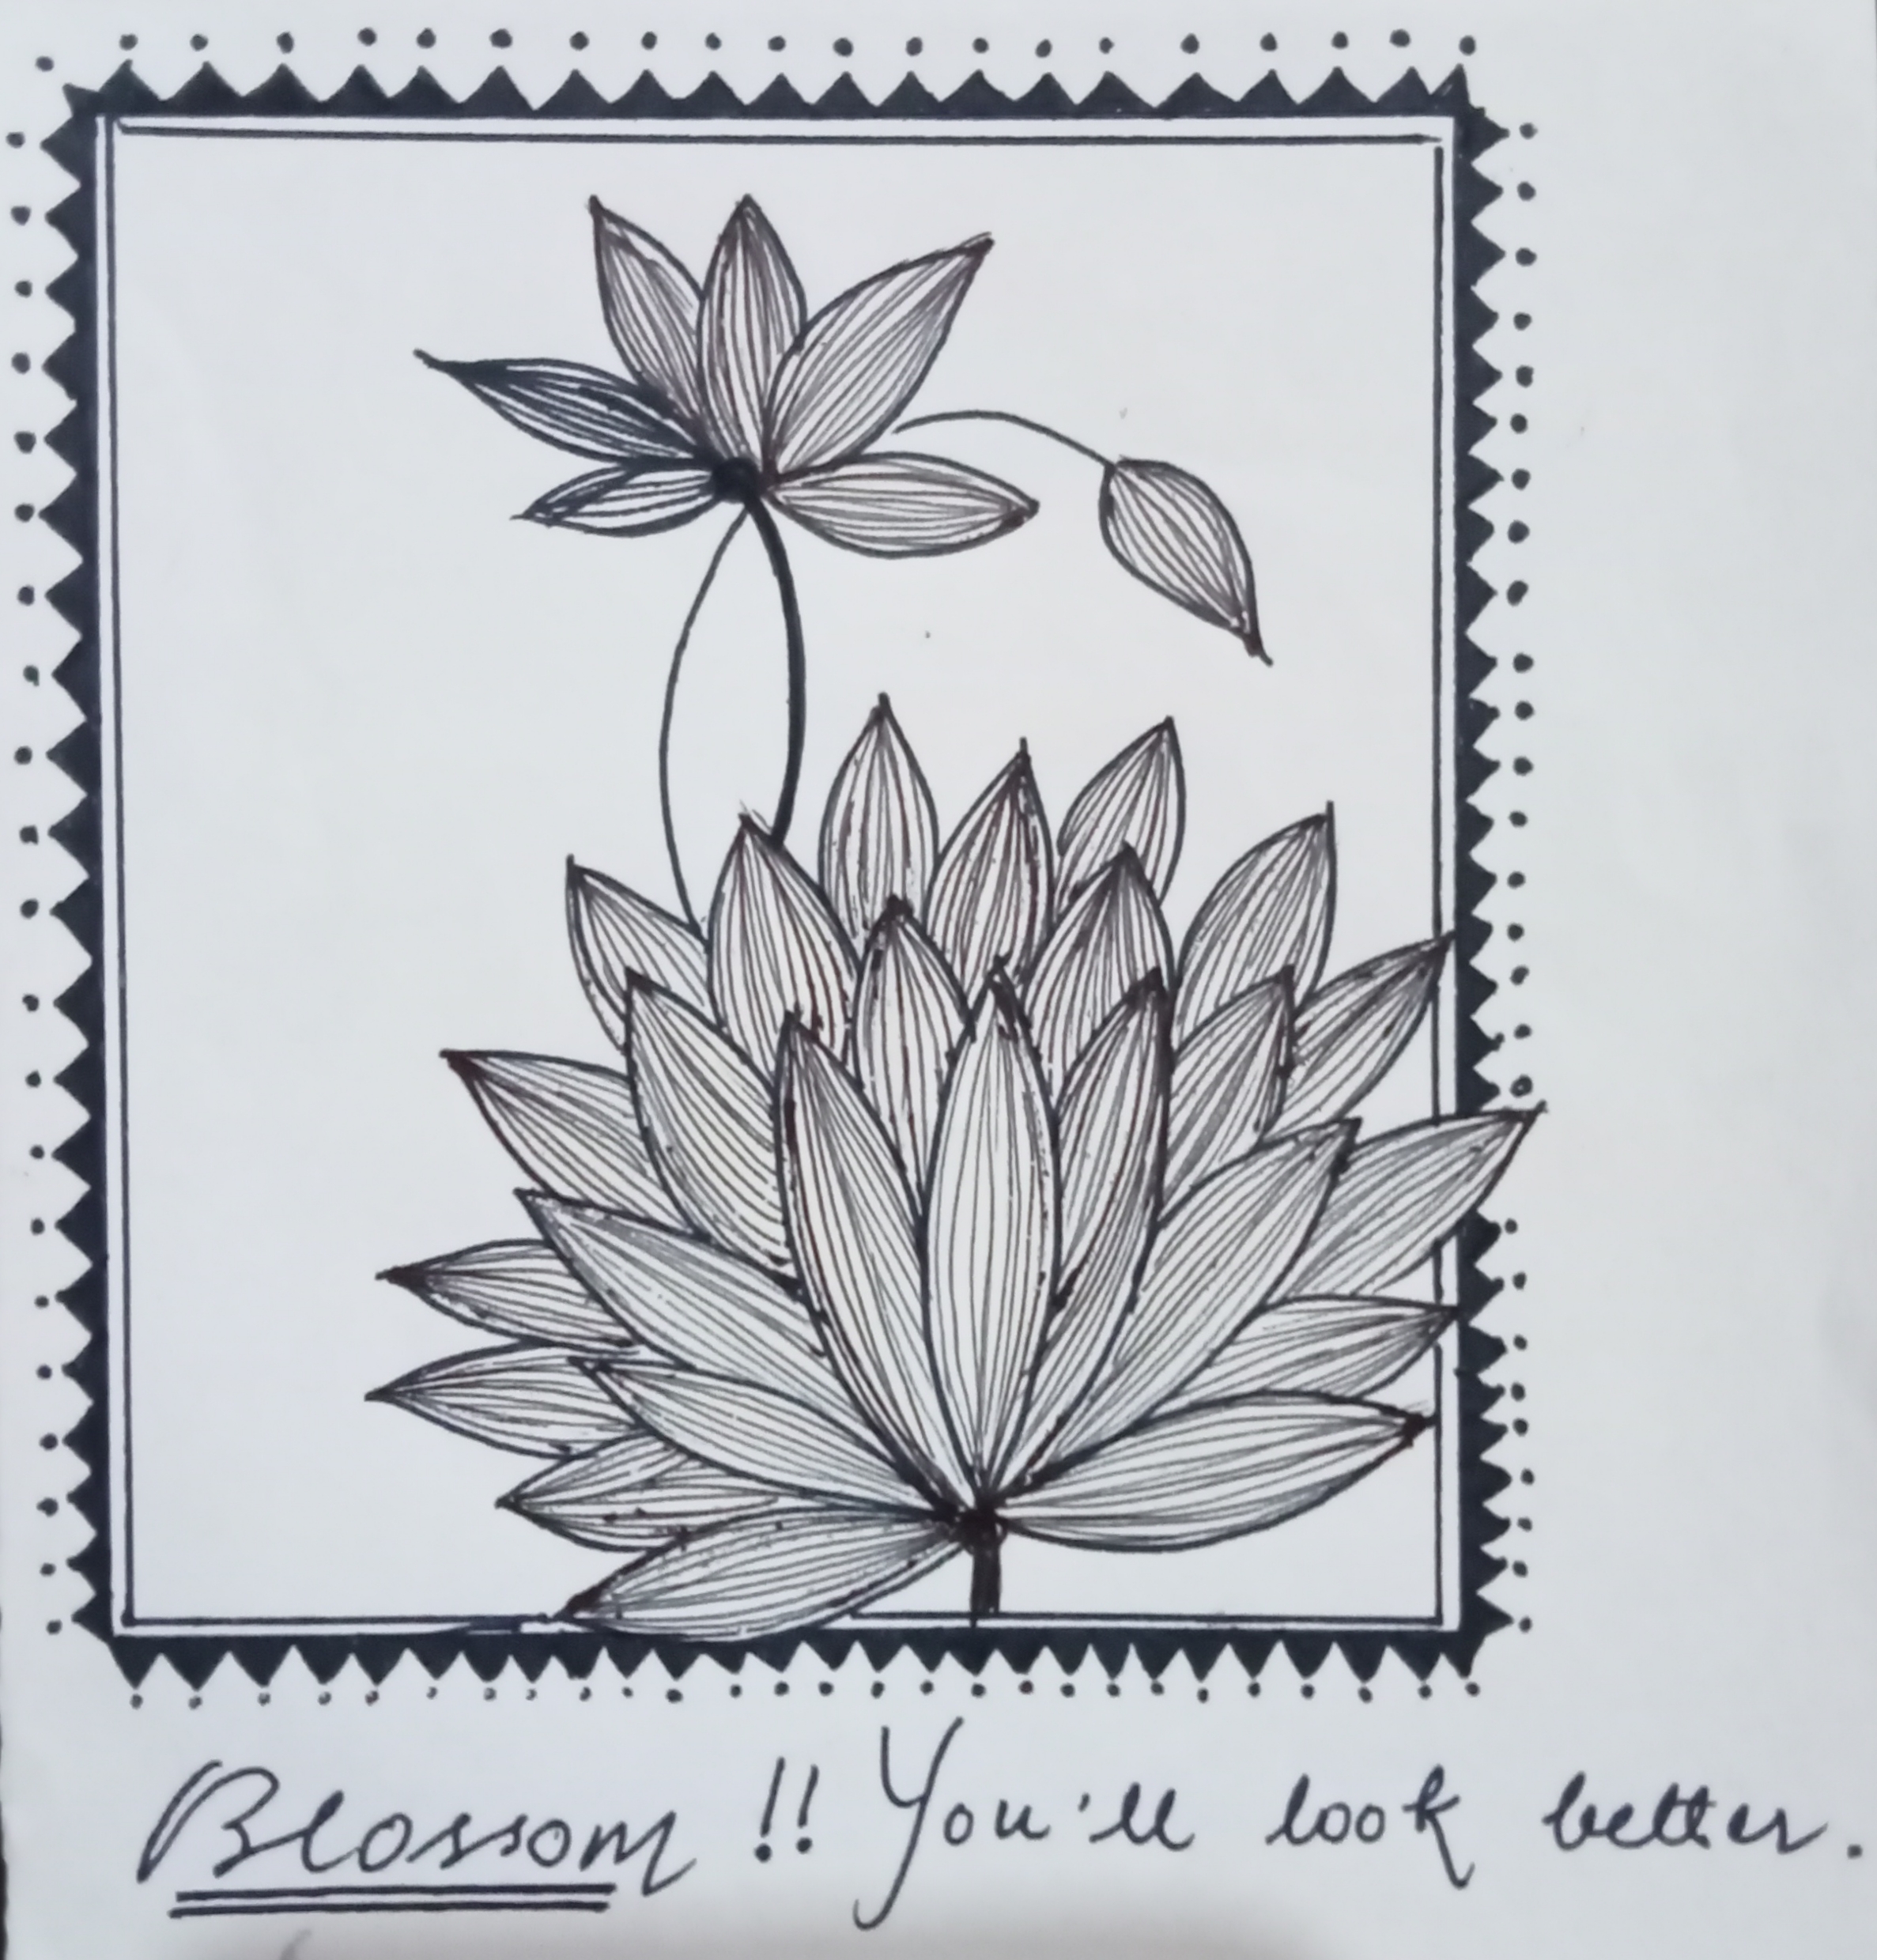 Blossom !! You'll look better.